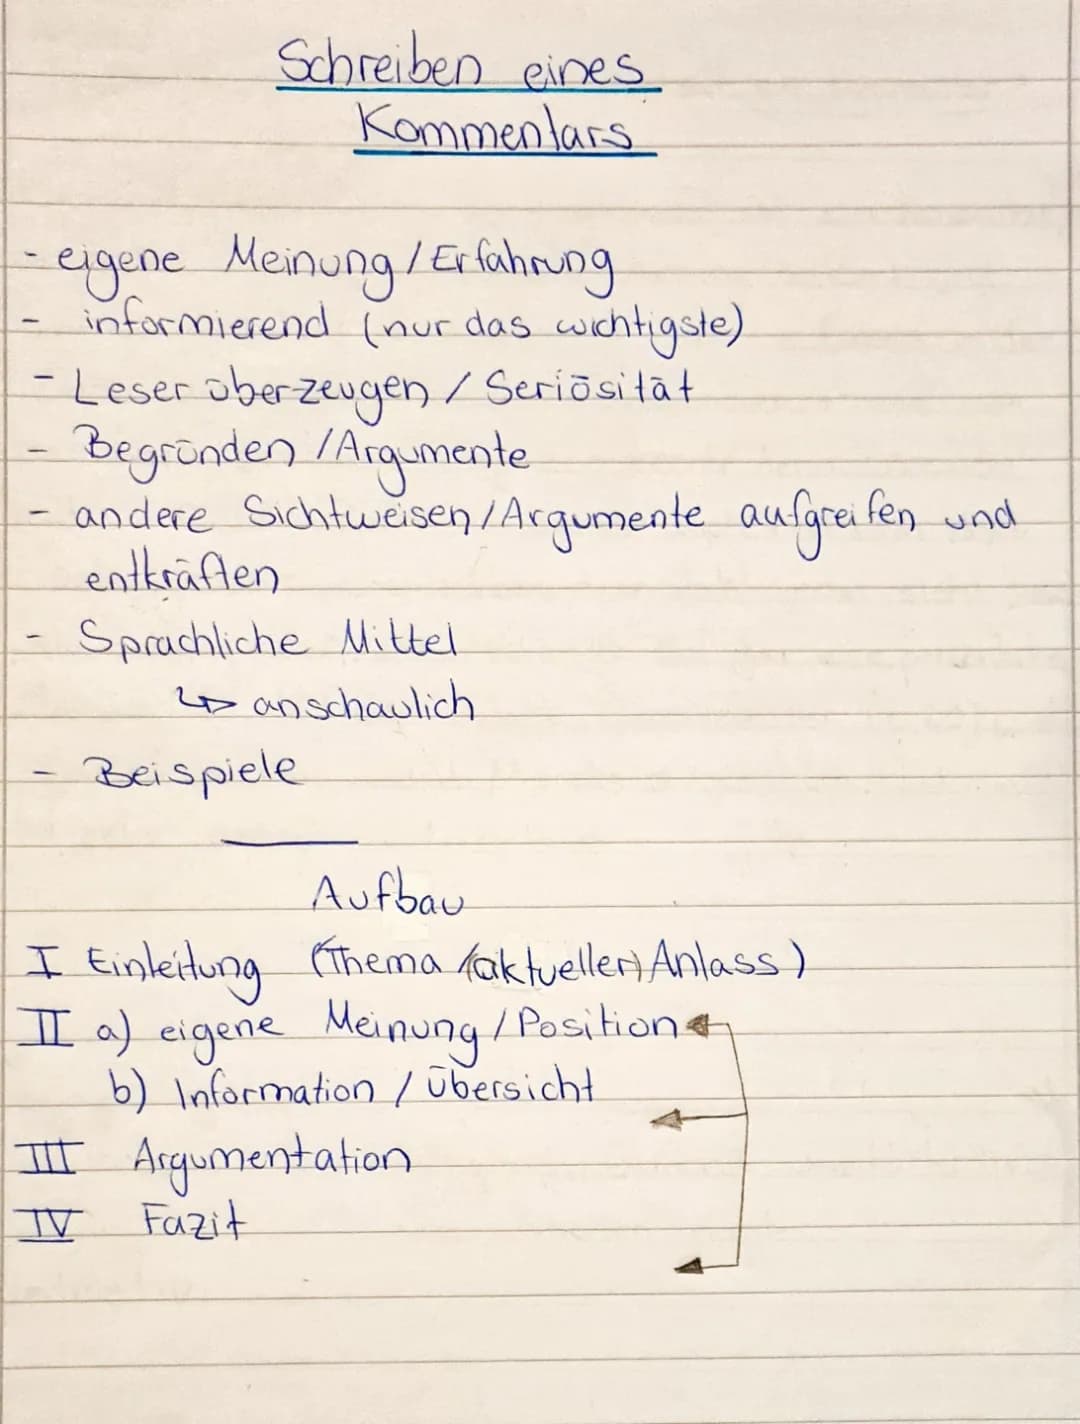 Schreiben eines
Kommentars
- eigene Meinung / Erfahrung
- informierend (nur das wichtigste)
- Leser überzeugen / Seriösität
- Begründen / Argumente
- andere Sichtweisen / Argumente aufgreifen und
entkräften
- Sprachliche Mittel
↳ anschaulich
- Beispiele
Aufbau
I Einleitung (Thema /(aktueller) Anlass)
II a) eigene Meinung / Position
b) Information / Übersicht
III Argumentation
IV Fazit